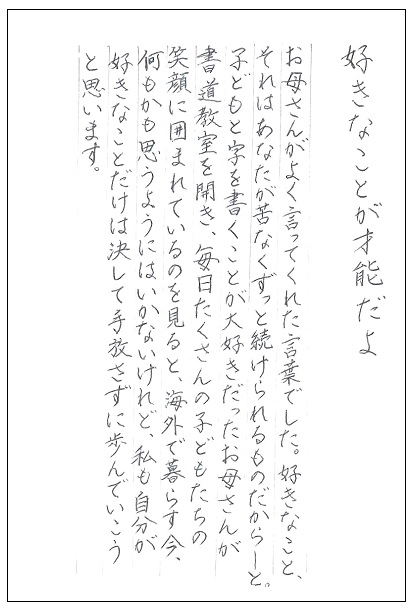 好きなことが才能だよ
お母さんがよく言ってくれた言葉でした。好きなこと、
それはあなたが苦なくずっと続けられるものだからーと。
子どもと字を書くことが大好きだったお母さんが
書道教室を開き、毎日たくさんの子どもたちの
笑顔に囲まれているのを見ると、海外で暮らす今、
何もかも思うようにはいかないけれど、私も自分が
好きなことだけは決して手放さずに歩んでいこう
と思います。